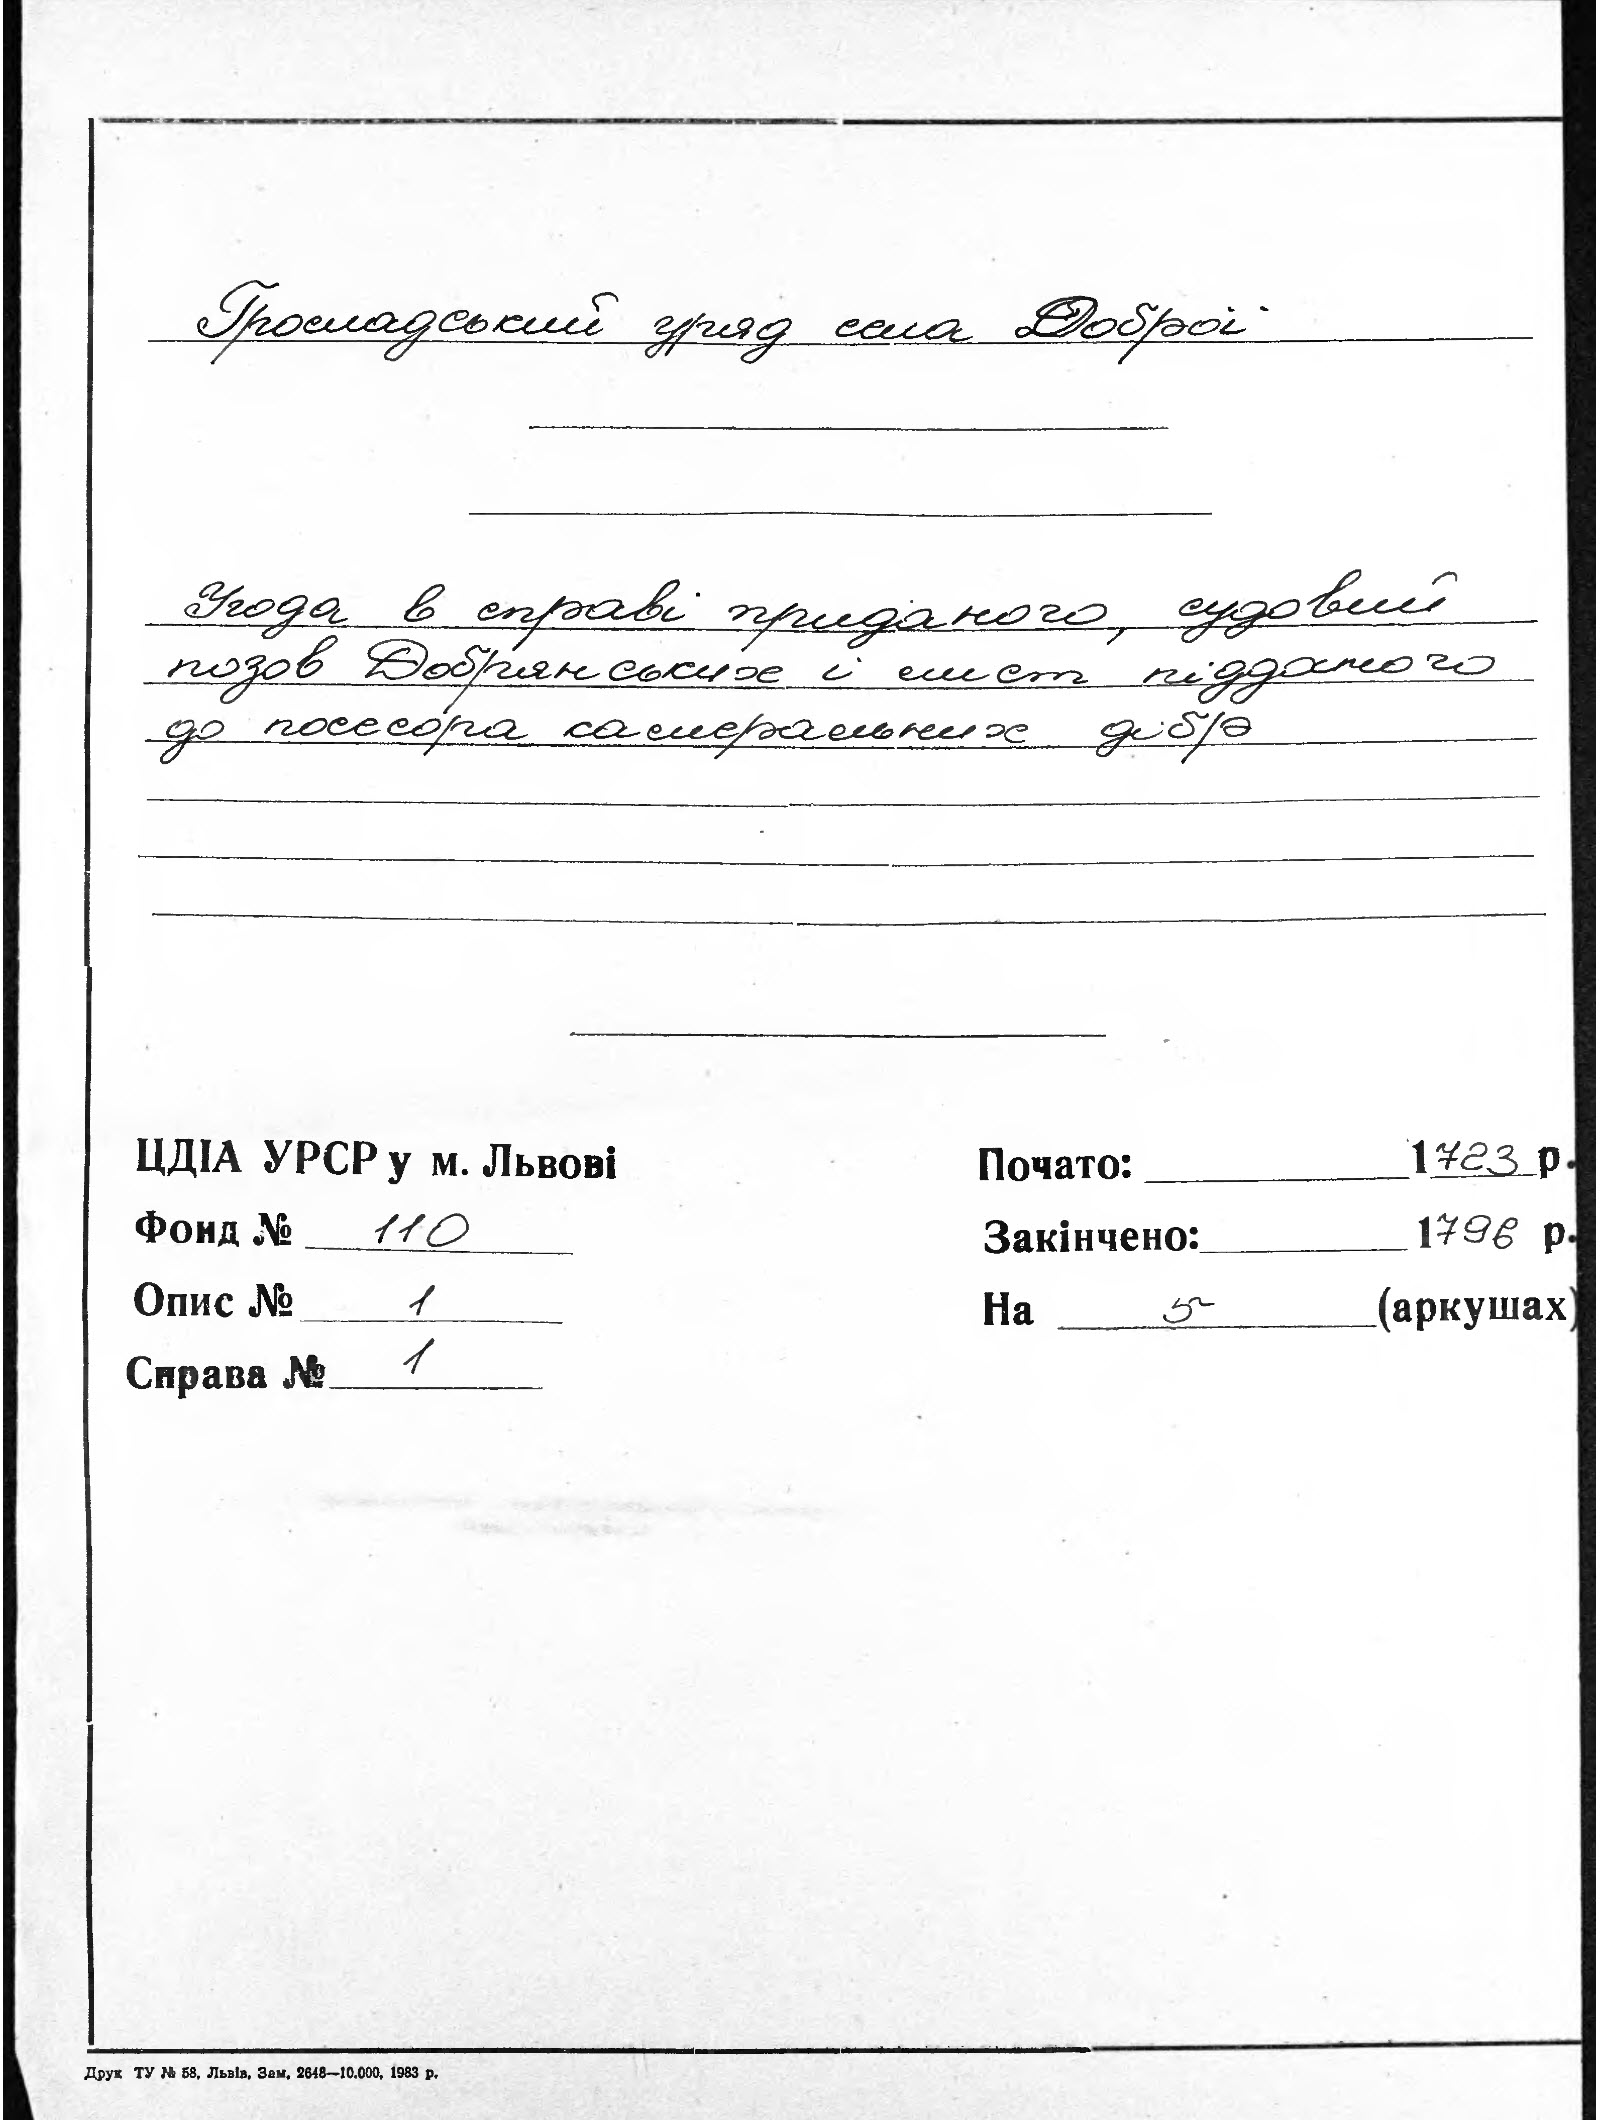 Громадський уряд села Доброї
Угода в справі приданого, судовий
позов Добрянських і лист підданого
до посесора камеральних дібр
ЦДІА УРСР у м. Львові
Фонд № 110
Опис № 1
Справа № 1
Почато: 1723 р.
Закінчено: 1796 р.
На 5 (аркушах)
Друк ТУ № 58, Львів, Зам. 2648—10.000, 1983 р.